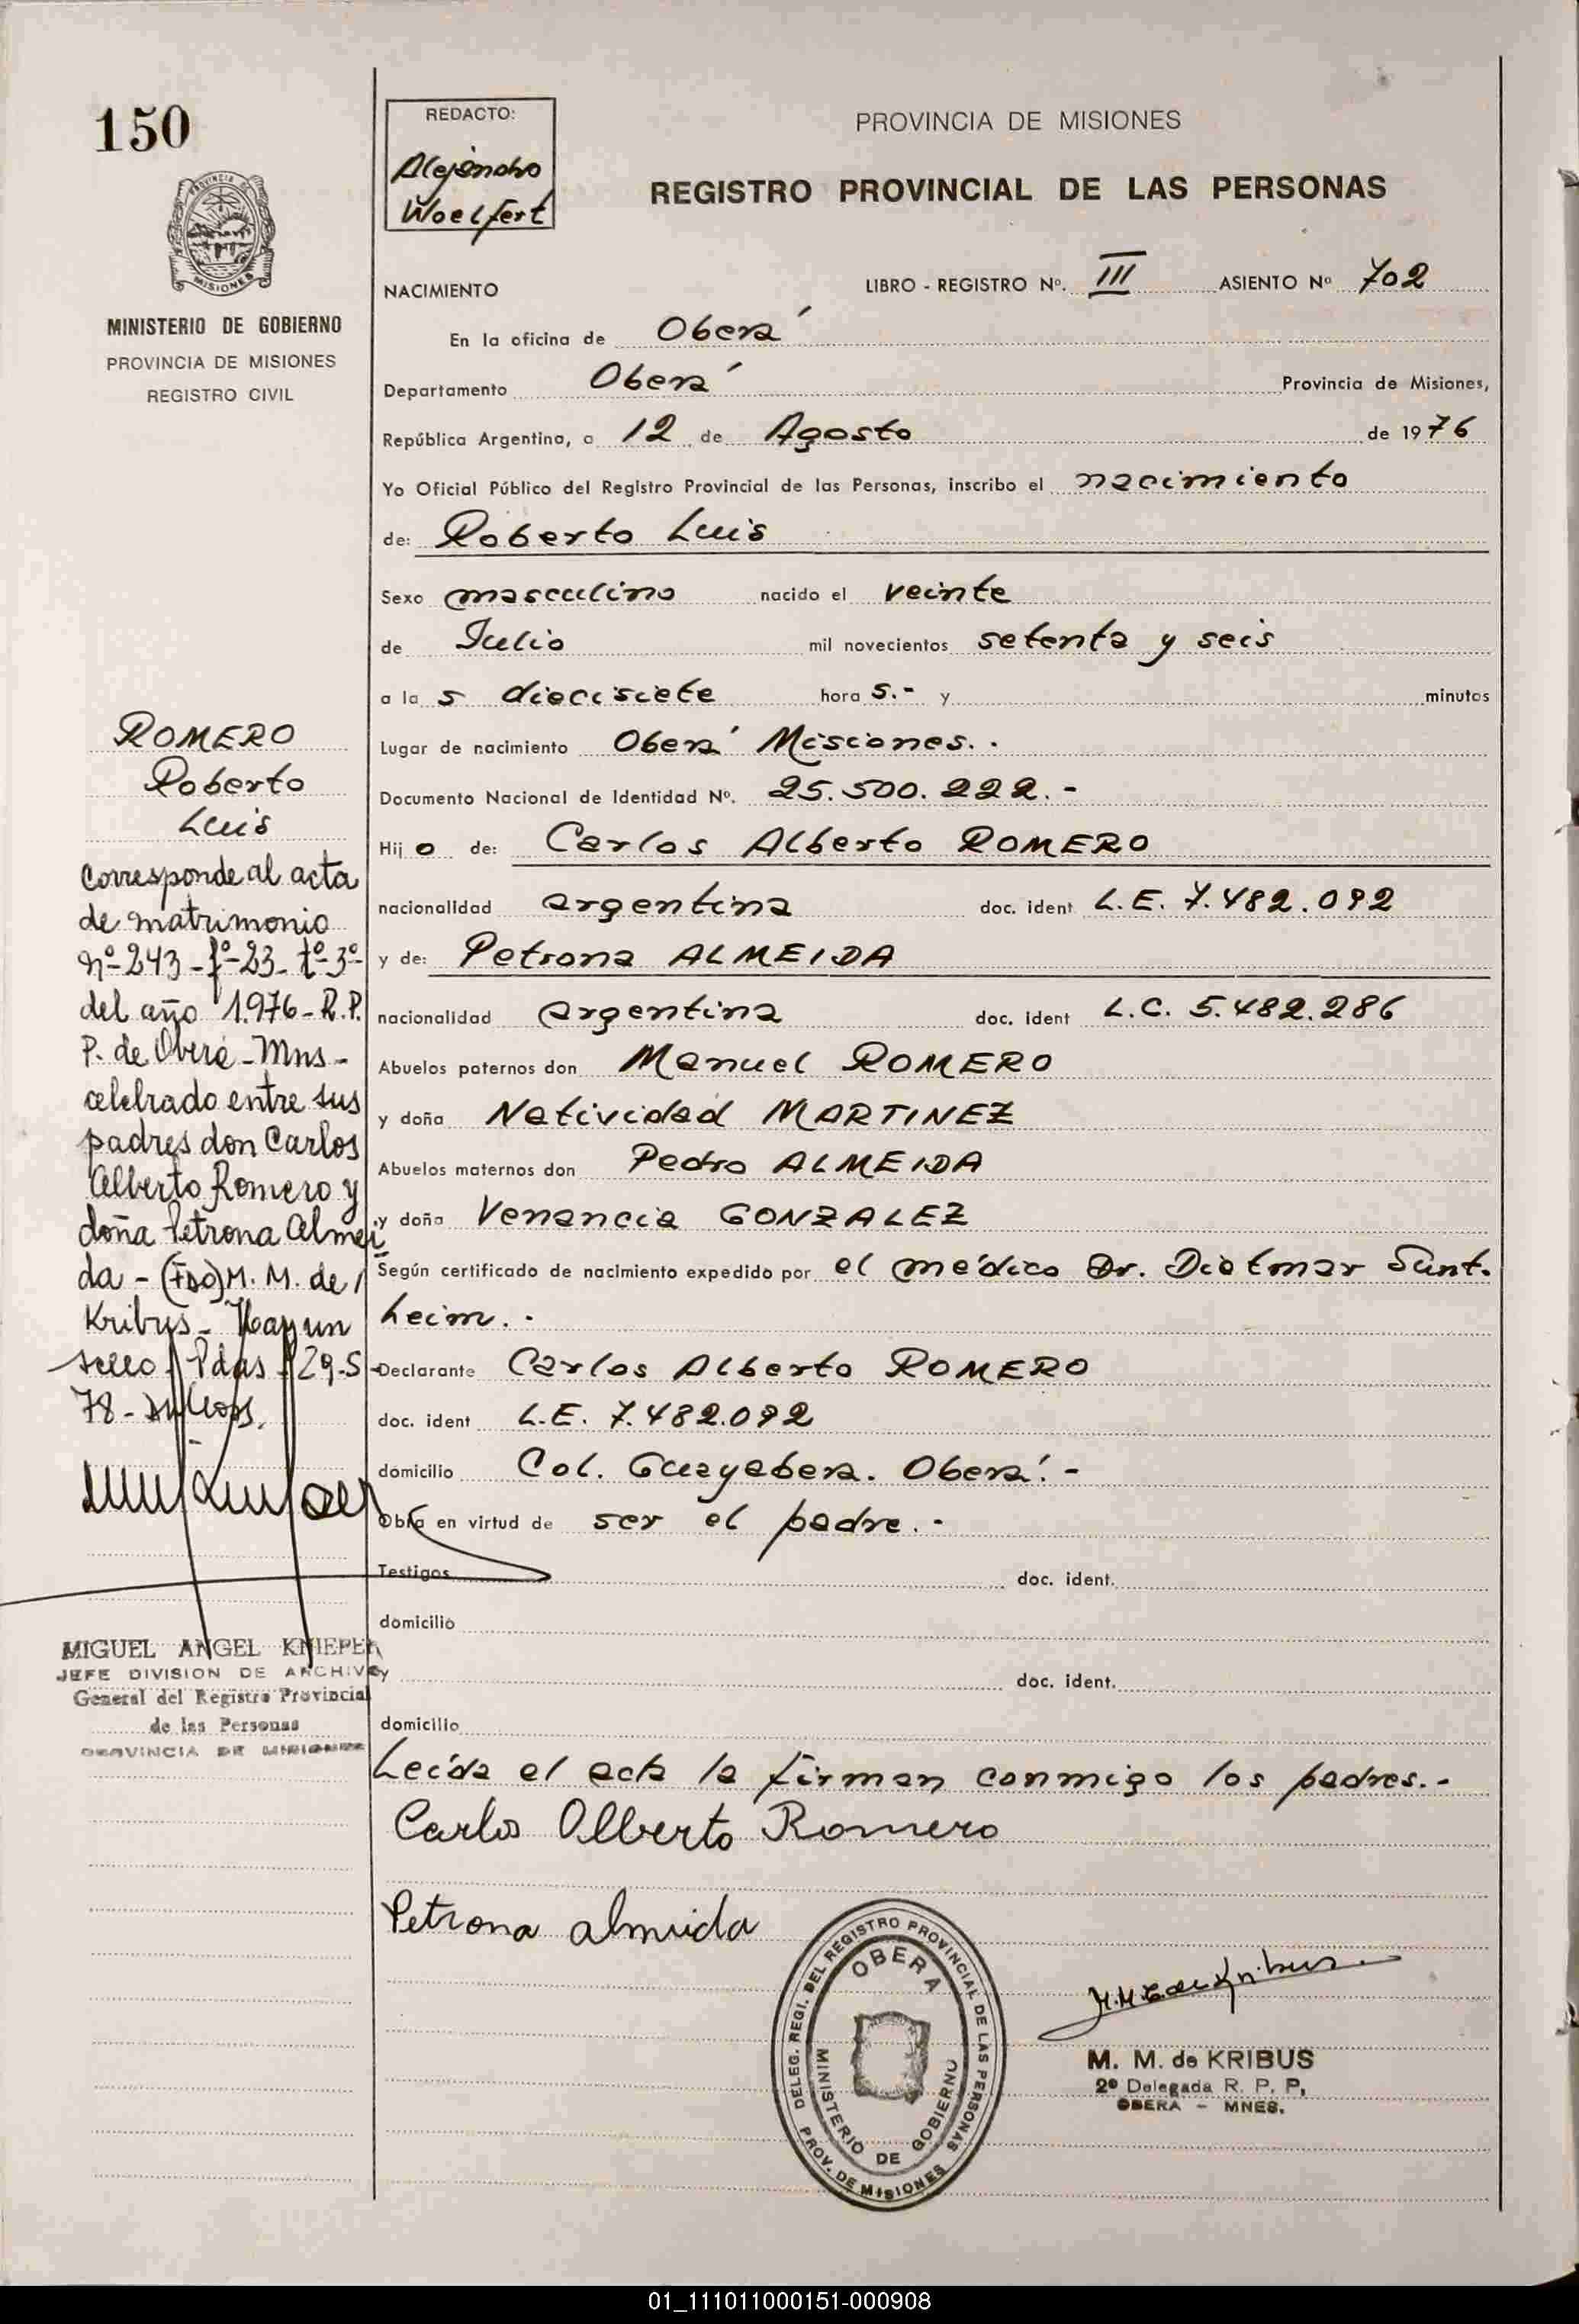 150
REDACTO:
Alejandro
Woelfert
PROVINCIA DE MISIONES
REGISTRO PROVINCIAL DE LAS PERSONAS
MISIONES
MINISTERIO DE GOBIERNO
PROVINCIA DE MISIONES
REGISTRO CIVIL
NACIMIENTO
LIBRO - REGISTRO Nº. III ASIENTO Nº 702
En la oficina de Oberá
Departamento Oberá Provincia de Misiones,
República Argentina, a 12 de Agosto de 1976
Yo Oficial Público del Registro Provincial de las Personas, inscribo el nacimiento
de: Roberto Luis
Sexo masculino nacido el veinte
de Julio mil novecientos setenta y seis
a la s diecisiete hora s.- y minutos
Lugar de nacimiento Oberá Misiones.-
Documento Nacional de Identidad Nº. 25.500.222.-
Hij o de: Carlos Alberto ROMERO
nacionalidad argentina doc. ident L.E. 7.482.092
y de: Petrona ALMEIDA
nacionalidad argentina doc. ident L.C. 5.482.286
Abuelos paternos don Manuel ROMERO
y doña Natividad MARTINEZ
Abuelos maternos don Pedro ALMEIDA
y doña Venancia GONZALEZ
Según certificado de nacimiento expedido por el médico Dr. Diotmar Sunt.
heim.-
Declarante Carlos Alberto ROMERO
doc. ident L.E. 7.482.092
domicilio Col. Guayabera. Oberá.-
Obra en virtud de ser el padre.-
Testigos doc. ident.
domicilio
y doc. ident.
domicilio
Leída el acta la firman conmigo los padres.-
Carlos Alberto Romero
Petrona almeida
ROMERO
Roberto
Luis
Corresponde al acta
de matrimonio
nº-243-fº-23-tº-3º-
del año 1.976-R.P.
P. de Oberá-Mns-
celebrado entre sus
padres don Carlos
Alberto Romero y
doña Petrona Almei
da-(FDO)M. M. de
Kribus- Hay un
sello. Pdas-29-5-
78-
MIGUEL ANGEL KNIEPER
JEFE DIVISION DE ARCHIVO
General del Registro Provincial
de las Personas
PROVINCIA DE MISIONES
DELEG. REGI. DEL REGISTRO PROVINCIAL DE LAS PERSONAS
OBERA
MINISTERIO DE GOBIERNO
PROV. DE MISIONES
M. M. de KRIBUS
2º Delegada R. P. P,
OBERA - MNES.
01_111011000151-000908